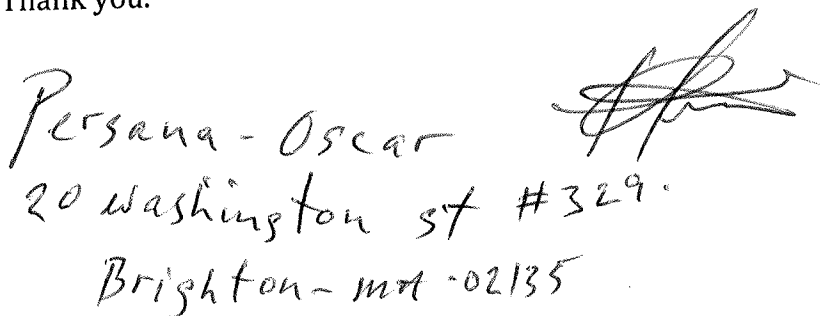 Thank you.
Persana - Oscar
20 washington st #329.
Brighton - MA - 02135